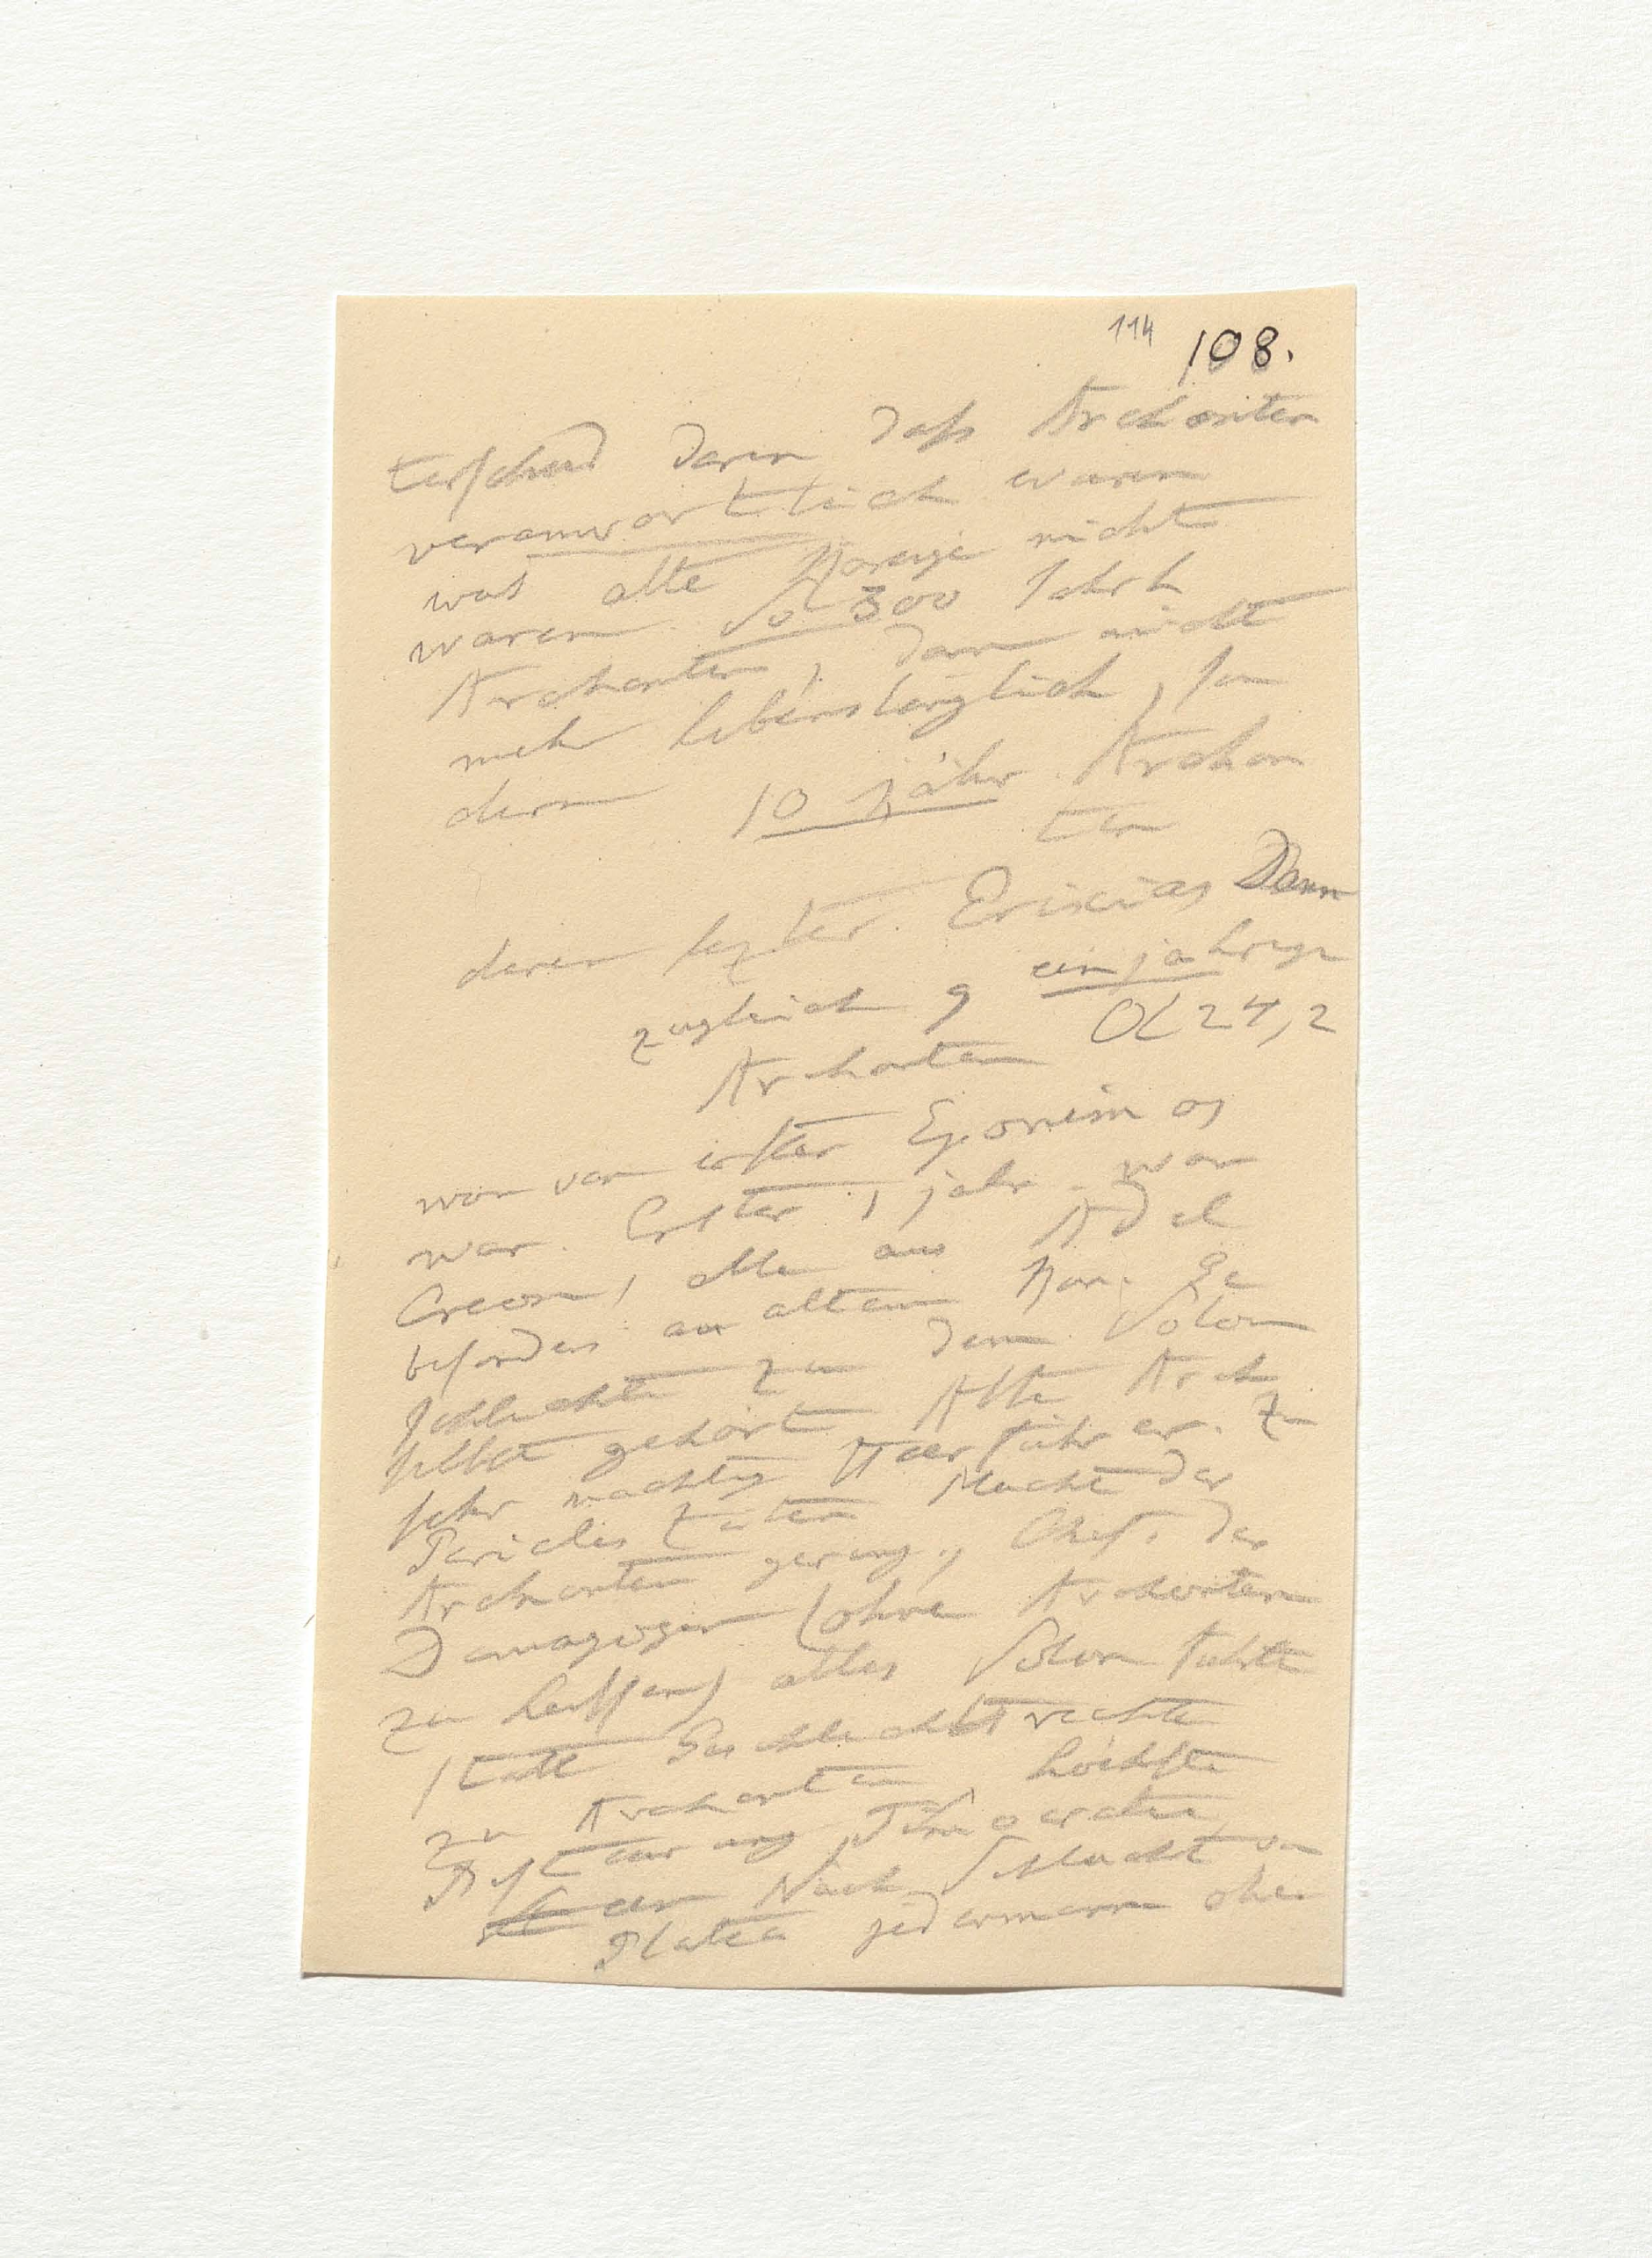 114 108.
terschied daren daß Archonten
veranwortlich waren
was alte Könige nicht
waren. So 300 Jahrh
Archonten, dann nicht
mehr lebenslänglich, son
dern 10 jähr. Archon
ten
deren lezter. Erixias Dann
zugleich 9 einjahrige
Archonten OL 24,2
von erster Eponimos
war. Erster 1 jahr. war
Creon, alle aus Adel
besonders aus altem Kön. Ge
schlechte zu dem Solon
selbst gehört Alte Arch
sehr machtig Heerführer. Zu
Pericles Zeiten Macht der
Archonten gering, Chef. der
Demagogen (ohne Archonten
zu heissen) alles Solon führte
statt Geschlecht rechte
zu Archonten, höchste
Besteurung, Timocratie,
Nach Schlacht von
Platea jedermann ohne